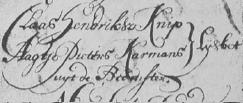 Claas Hendriksz Knip
Aagtje Pieters Karmans } Lijsbet
uijt de Beemster